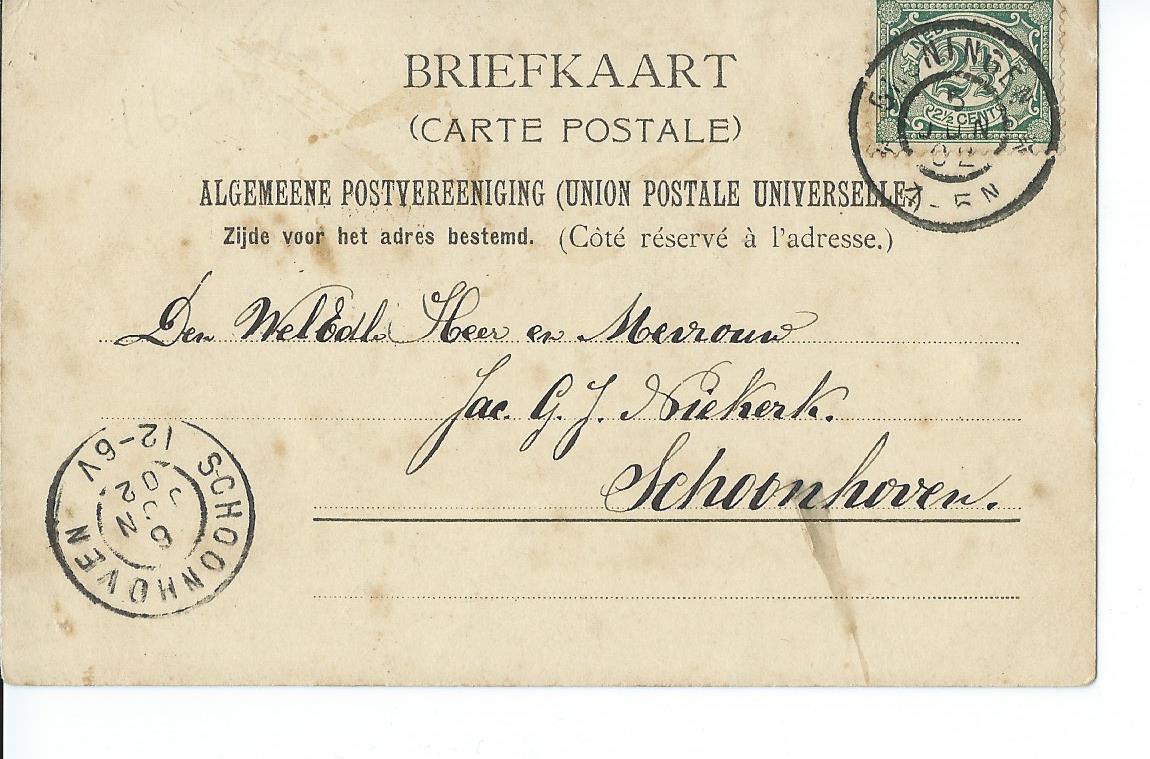 BRIEFKAART
(CARTE POSTALE)
ALGEMEENE POSTVEREENIGING (UNION POSTALE UNIVERSELLE)
Zijde voor het adres bestemd. (Côté réservé à l'adresse.)
2½ CENT
5
JUN
02
Den WelEdl. Heer en Mevrouw
Jac. G. J. Niekerk.
Schoonhoven.
SCHOONHOVEN
12-6V
6
JUN
02